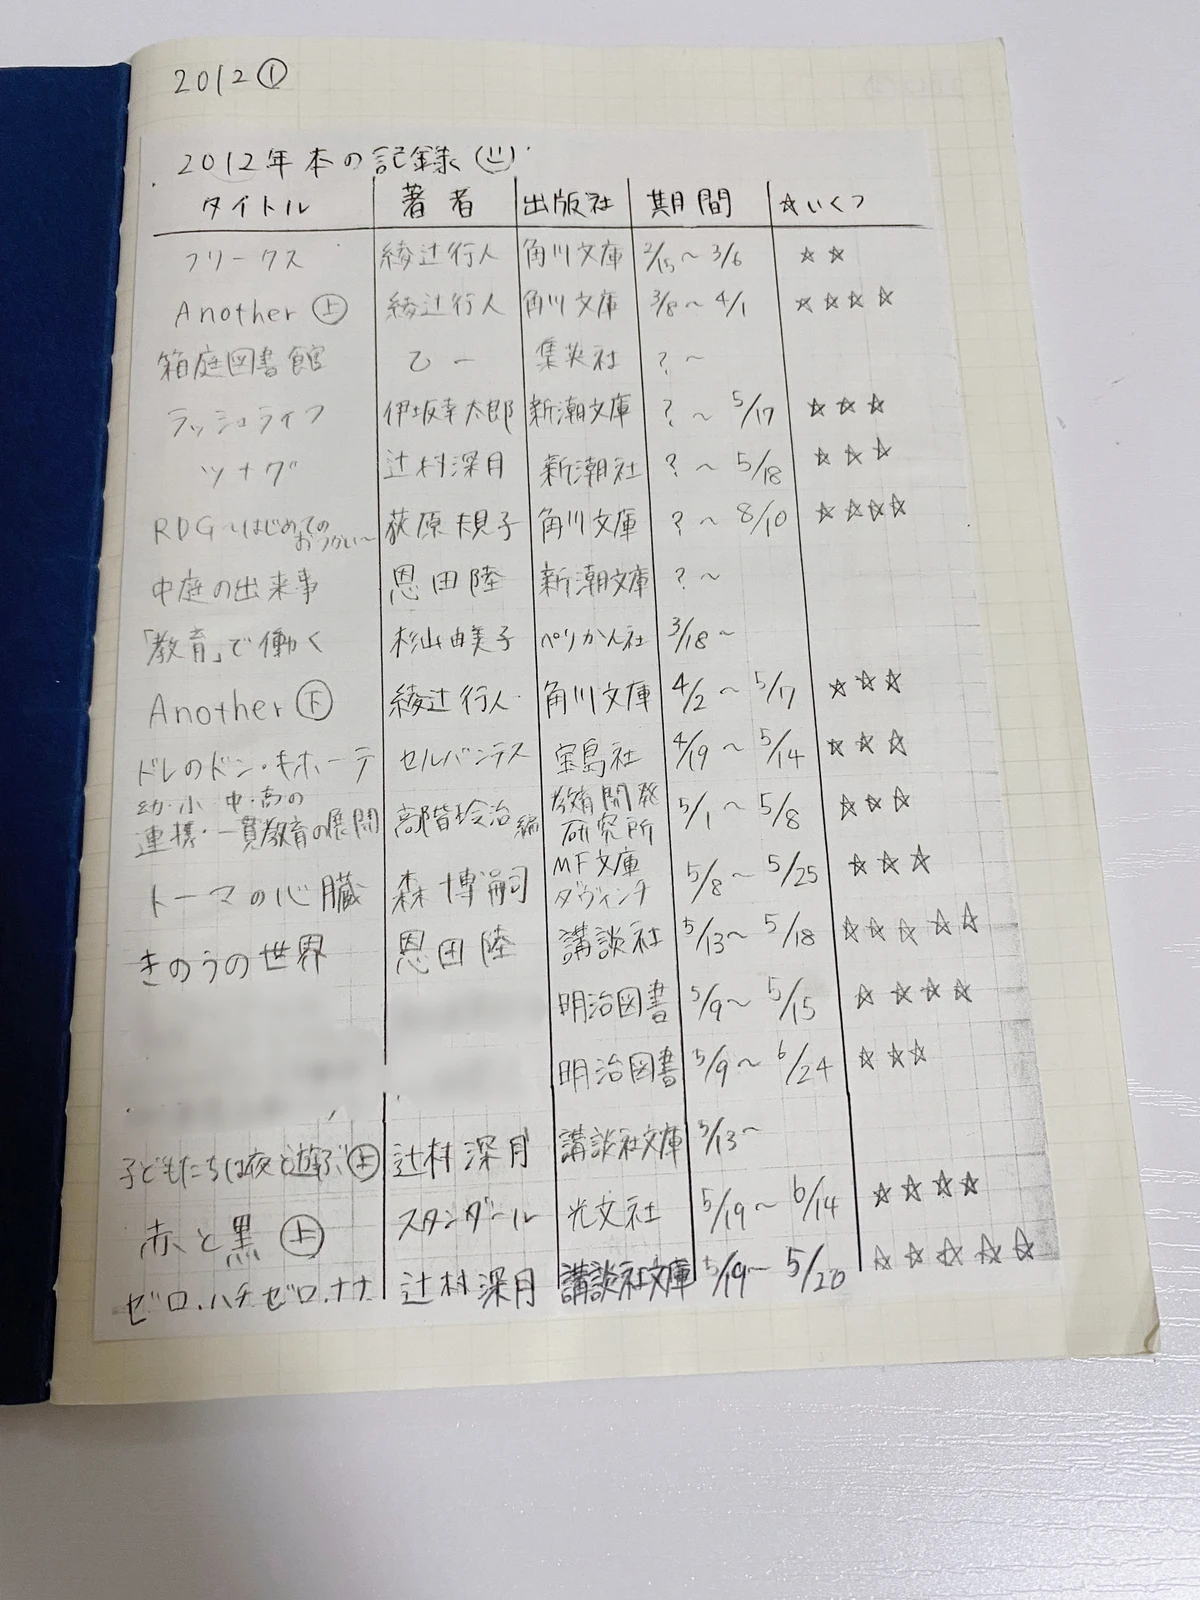 2012①
2012年本の記録(山)
タイトル 著者 出版社 期間 ☆いくつ
フリークス 綾辻行人 角川文庫 2/15～3/6 ☆☆
Another㊤ 綾辻行人 角川文庫 3/8～4/1 ☆☆☆☆
箱庭図書館 乙一 集英社 ?～
ラッシュライフ 伊坂幸太郎 新潮文庫 ?～5/17 ☆☆☆
ツナグ 辻村深月 新潮社 ?～5/18 ☆☆☆
RDG～はじめてのおつかい～ 荻原規子 角川文庫 ?～8/10 ☆☆☆☆
中庭の出来事 恩田陸 新潮文庫 ?～
「教育」で働く 杉山由美子 ぺりかん社 3/18～
Another㊦ 綾辻行人 角川文庫 4/2～5/17 ☆☆☆
ドレのドン・キホーテ セルバンテス 宝島社 4/19～5/14 ☆☆☆
幼・小・中・高の連携・一貫教育の展開 高階玲治編 教育開発研究所 5/1～5/8 ☆☆☆
トーマの心臓 森博嗣 MF文庫ダヴィンチ 5/8～5/25 ☆☆☆
きのうの世界 恩田陸 講談社 5/13～5/18 ☆☆☆☆☆
明治図書 5/9～5/15 ☆☆☆☆
明治図書 5/9～6/24 ☆☆☆
子どもたちは夜と遊ぶ㊤ 辻村深月 講談社文庫 5/13～
赤と黒㊤ スタンダール 光文社 5/19～6/14 ☆☆☆☆
ゼロ、ハチゼロ、ナナ 辻村深月 講談社文庫 5/19～5/20 ☆☆☆☆☆